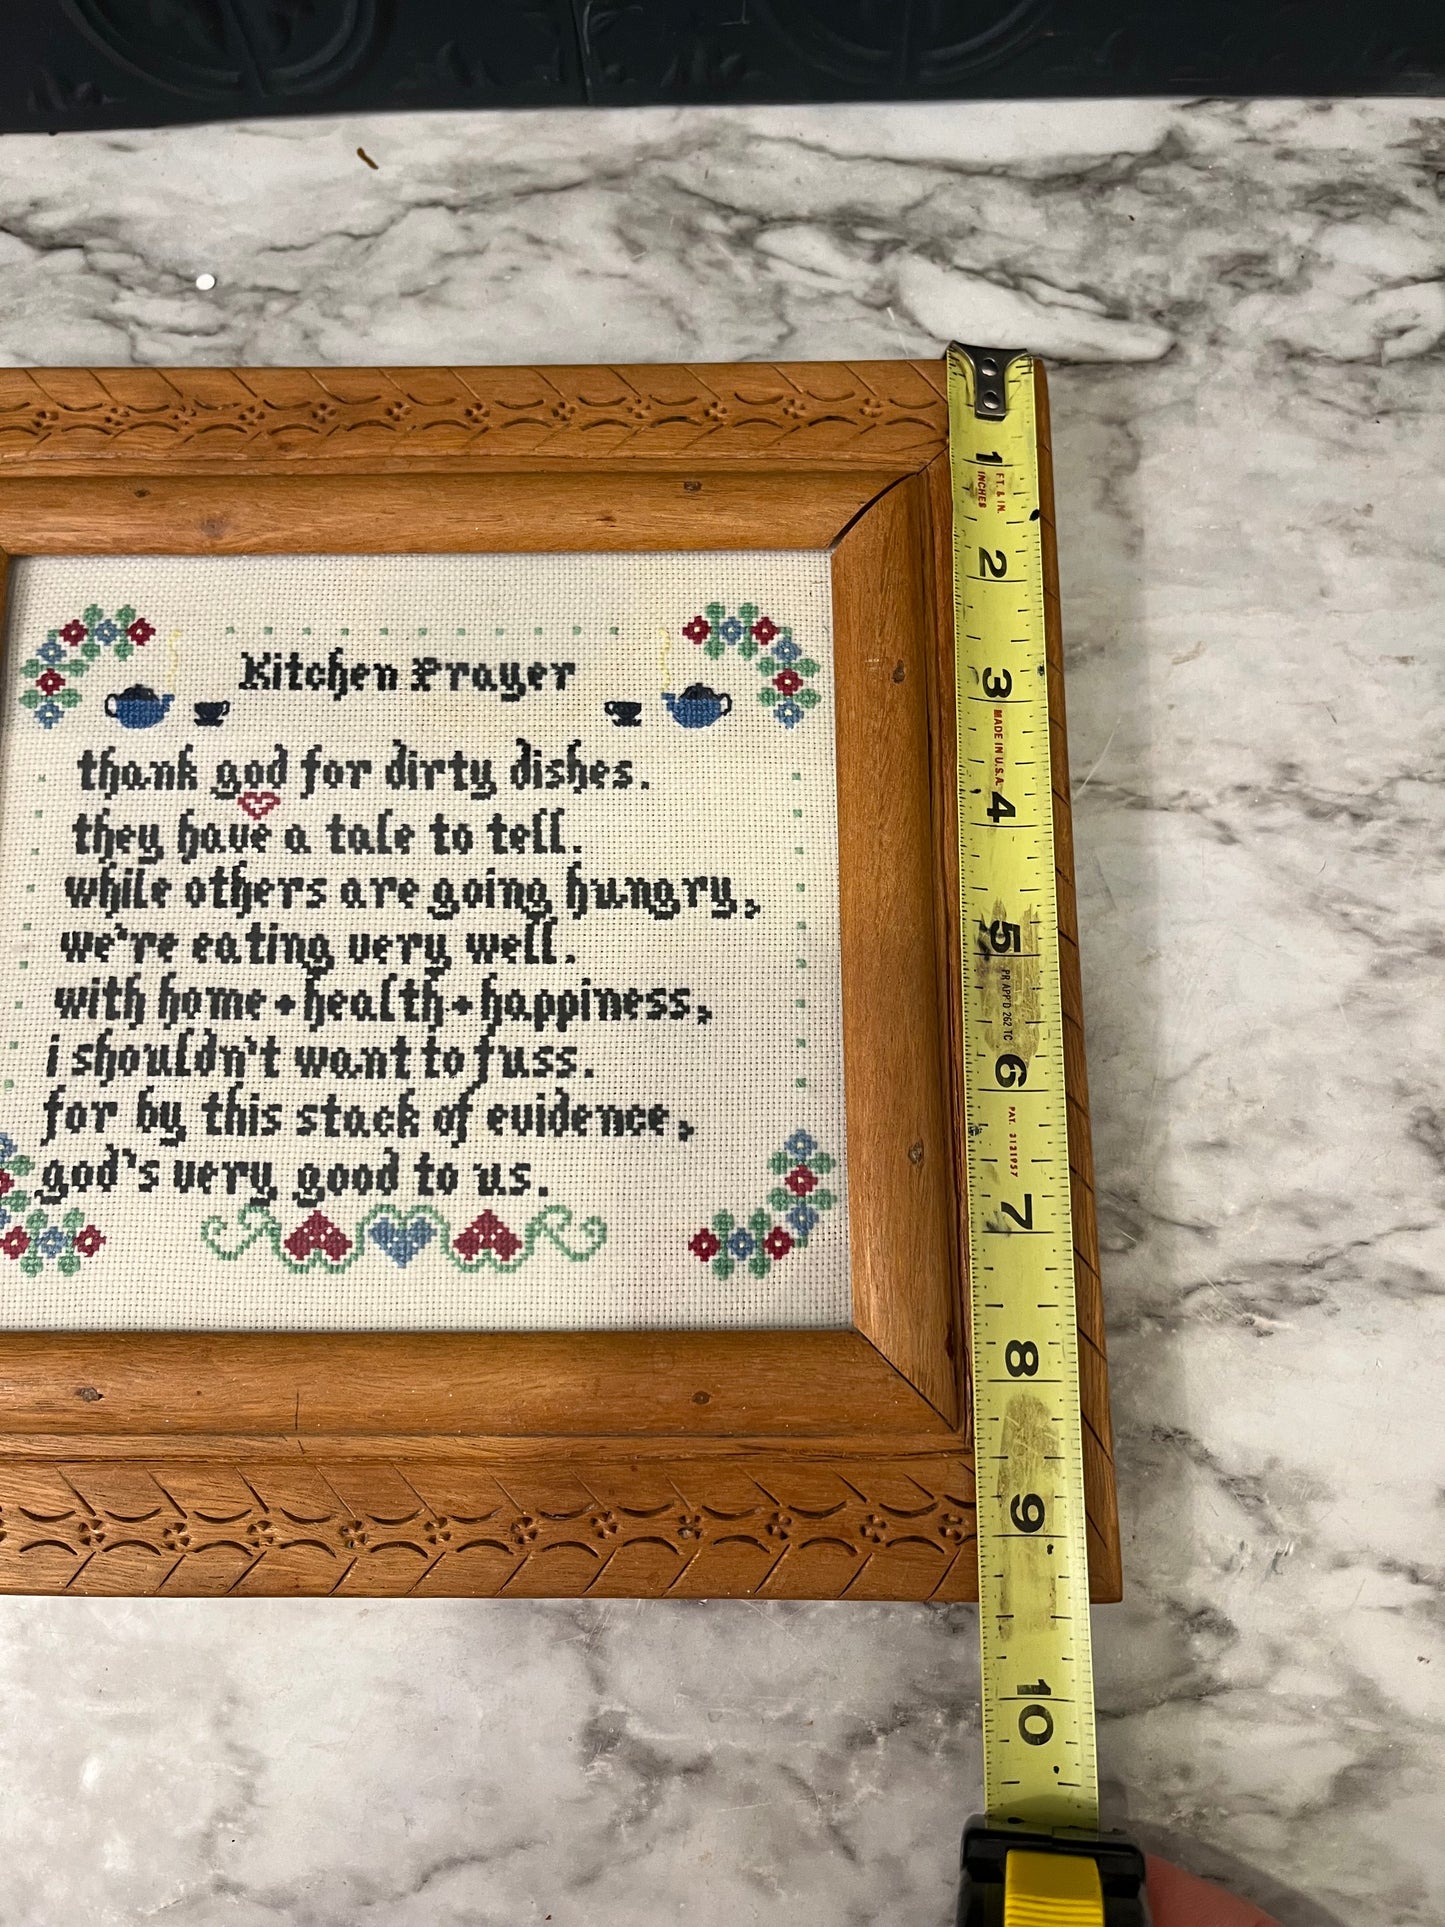 Kitchen Prayer
thank god for dirty dishes.
they have a tale to tell.
while others are going hungry,
we're eating very well.
with home + health + happiness,
i shouldn't want to fuss.
for by this stack of evidence,
god's very good to us.
1
FT. & IN.
INCHES
2
3
MADE IN U.S.A.
4
5
PR APP'D 262 TC
6
PAT. 3121957
7
8
9
10